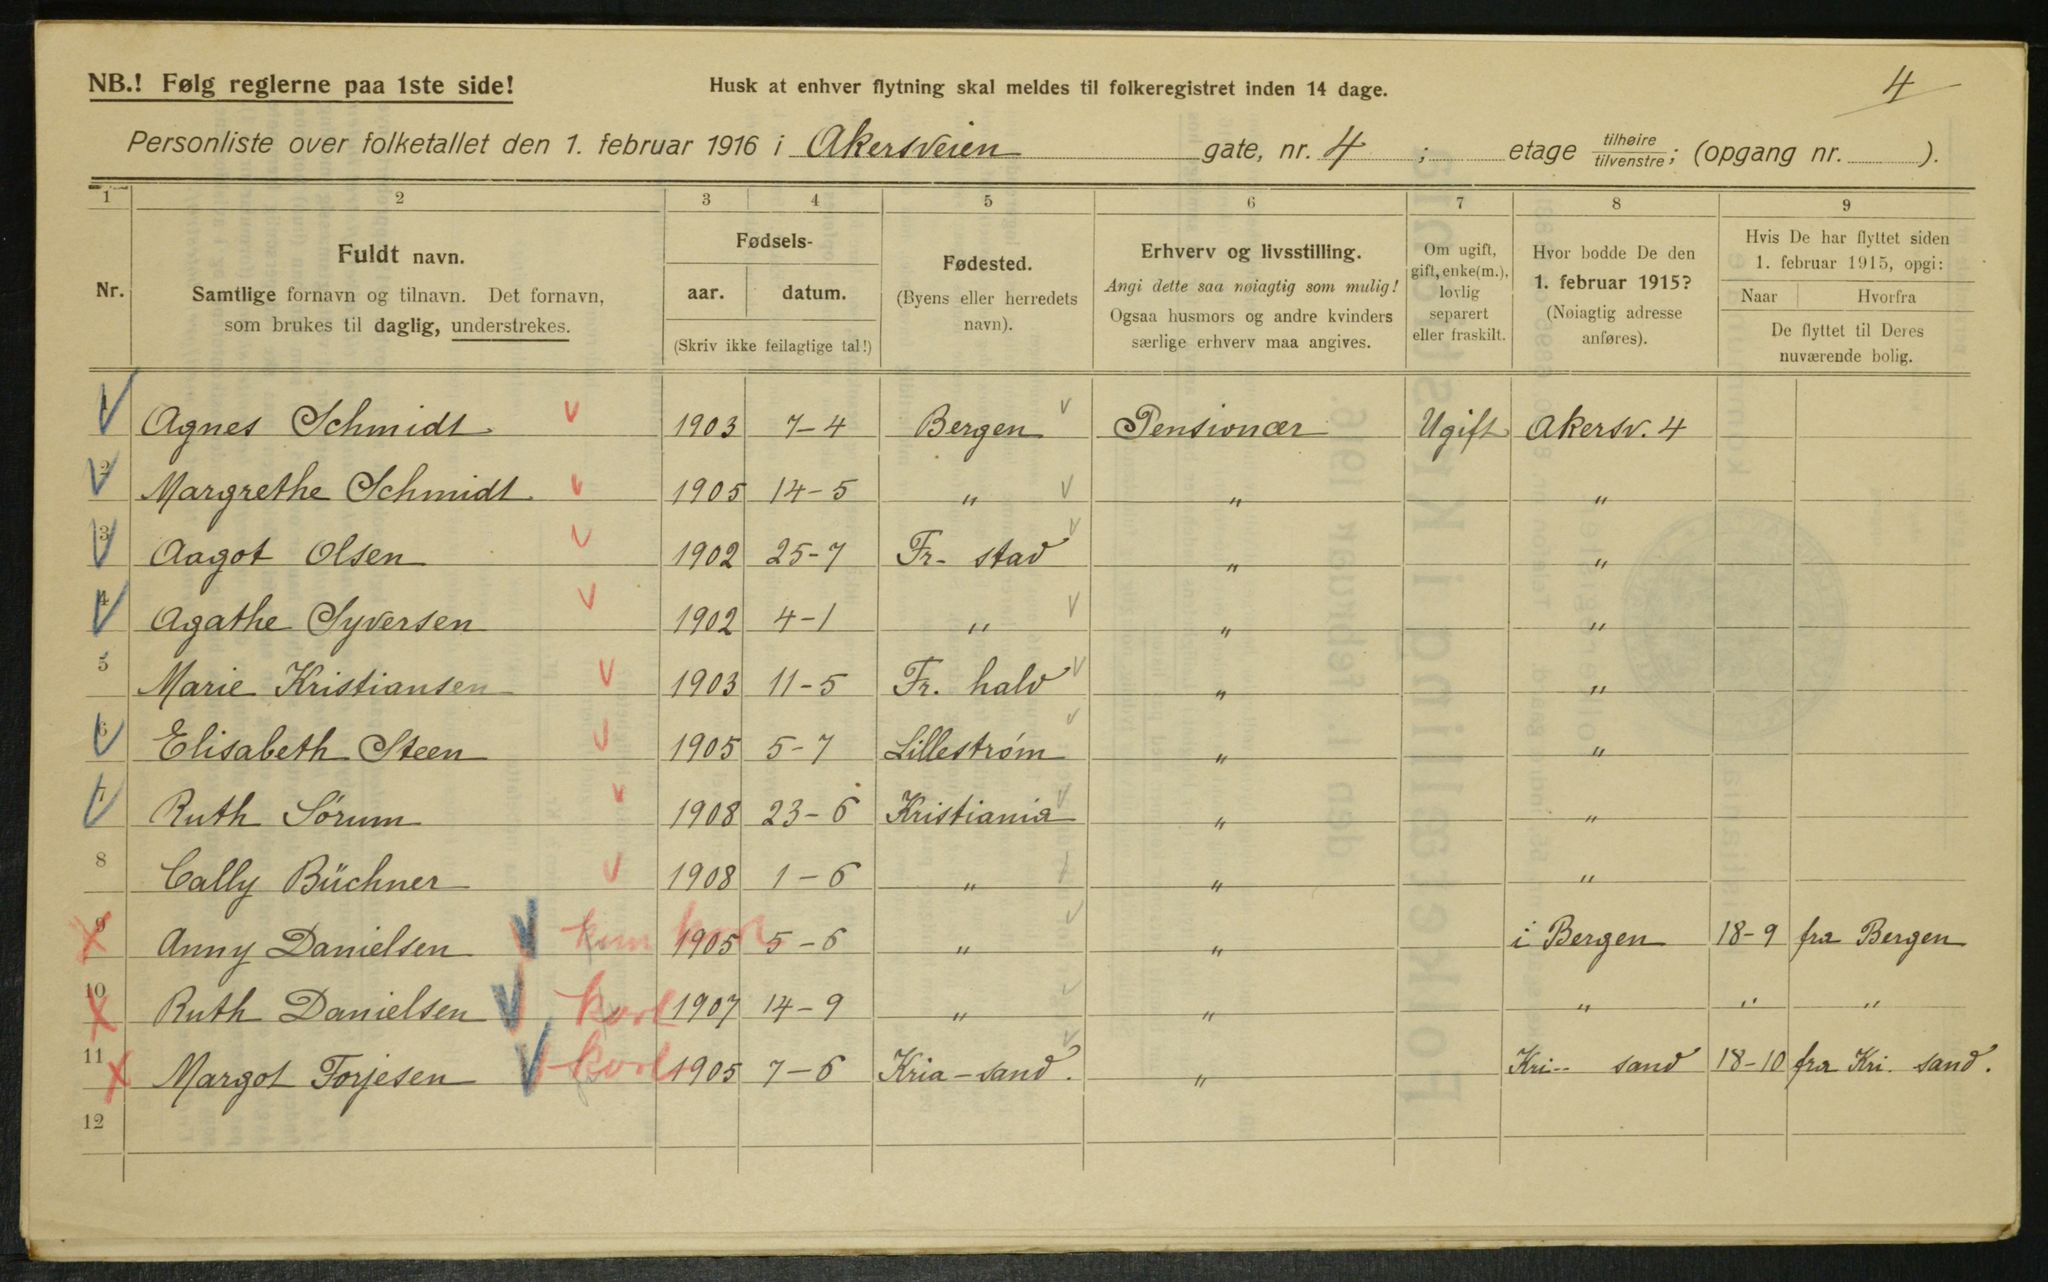 NB.! Følg reglerne paa 1ste side!
Husk at enhver flytning skal meldes til folkeregistret inden 14 dage.
4
Personliste over folketallet den 1. februar 1916 i Akersveien gate, nr. 4 ; etage tilhøire tilvenstre; (opgang nr. ).
1 2 3 4 5 6 7 8 9
Nr.
Fuldt navn.
Samtlige fornavn og tilnavn. Det fornavn,
som brukes til daglig, understrekes.
Fødsels-
aar. datum.
(Skriv ikke feilagtige tal!)
Fødested.
(Byens eller herredets
navn).
Erhverv og livsstilling.
Angi dette saa nøiagtig som mulig!
Ogsaa husmors og andre kvinders
særlige erhverv maa angives.
Om ugift,
gift, enke(m.),
lovlig
separert
eller fraskilt.
Hvor bodde De den
1. februar 1915?
(Nøiagtig adresse
anføres).
Hvis De har flyttet siden
1. februar 1915, opgi:
Naar Hvorfra
De flyttet til Deres
nuværende bolig.
1 Agnes Schmidt 1903 7-4 Bergen Pensionær Ugift Akersv. 4
2 Margrethe Schmidt 1905 14-5 " " "
3 Aagot Olsen 1902 25-7 Fr- stad " "
4 Agathe Syversen 1902 4-1 " " "
5 Marie Kristiansen 1903 11-5 Fr. hald " "
6 Elisabeth Steen 1905 5-7 Lillestrøm " "
7 Ruth Sørum 1908 23-6 Kristiania " "
8 Cally Büchner 1908 1-6 " " "
9 Anny Danielsen kun kort 1905 5-6 " " i Bergen 18-9 fra Bergen
10 Ruth Danielsen kort 1907 14-9 " " " " "
11 Margot Torjesen kort 1905 7-6 Kria-sand. " Kri-- sand 18-10 fra Kri. sand.
12